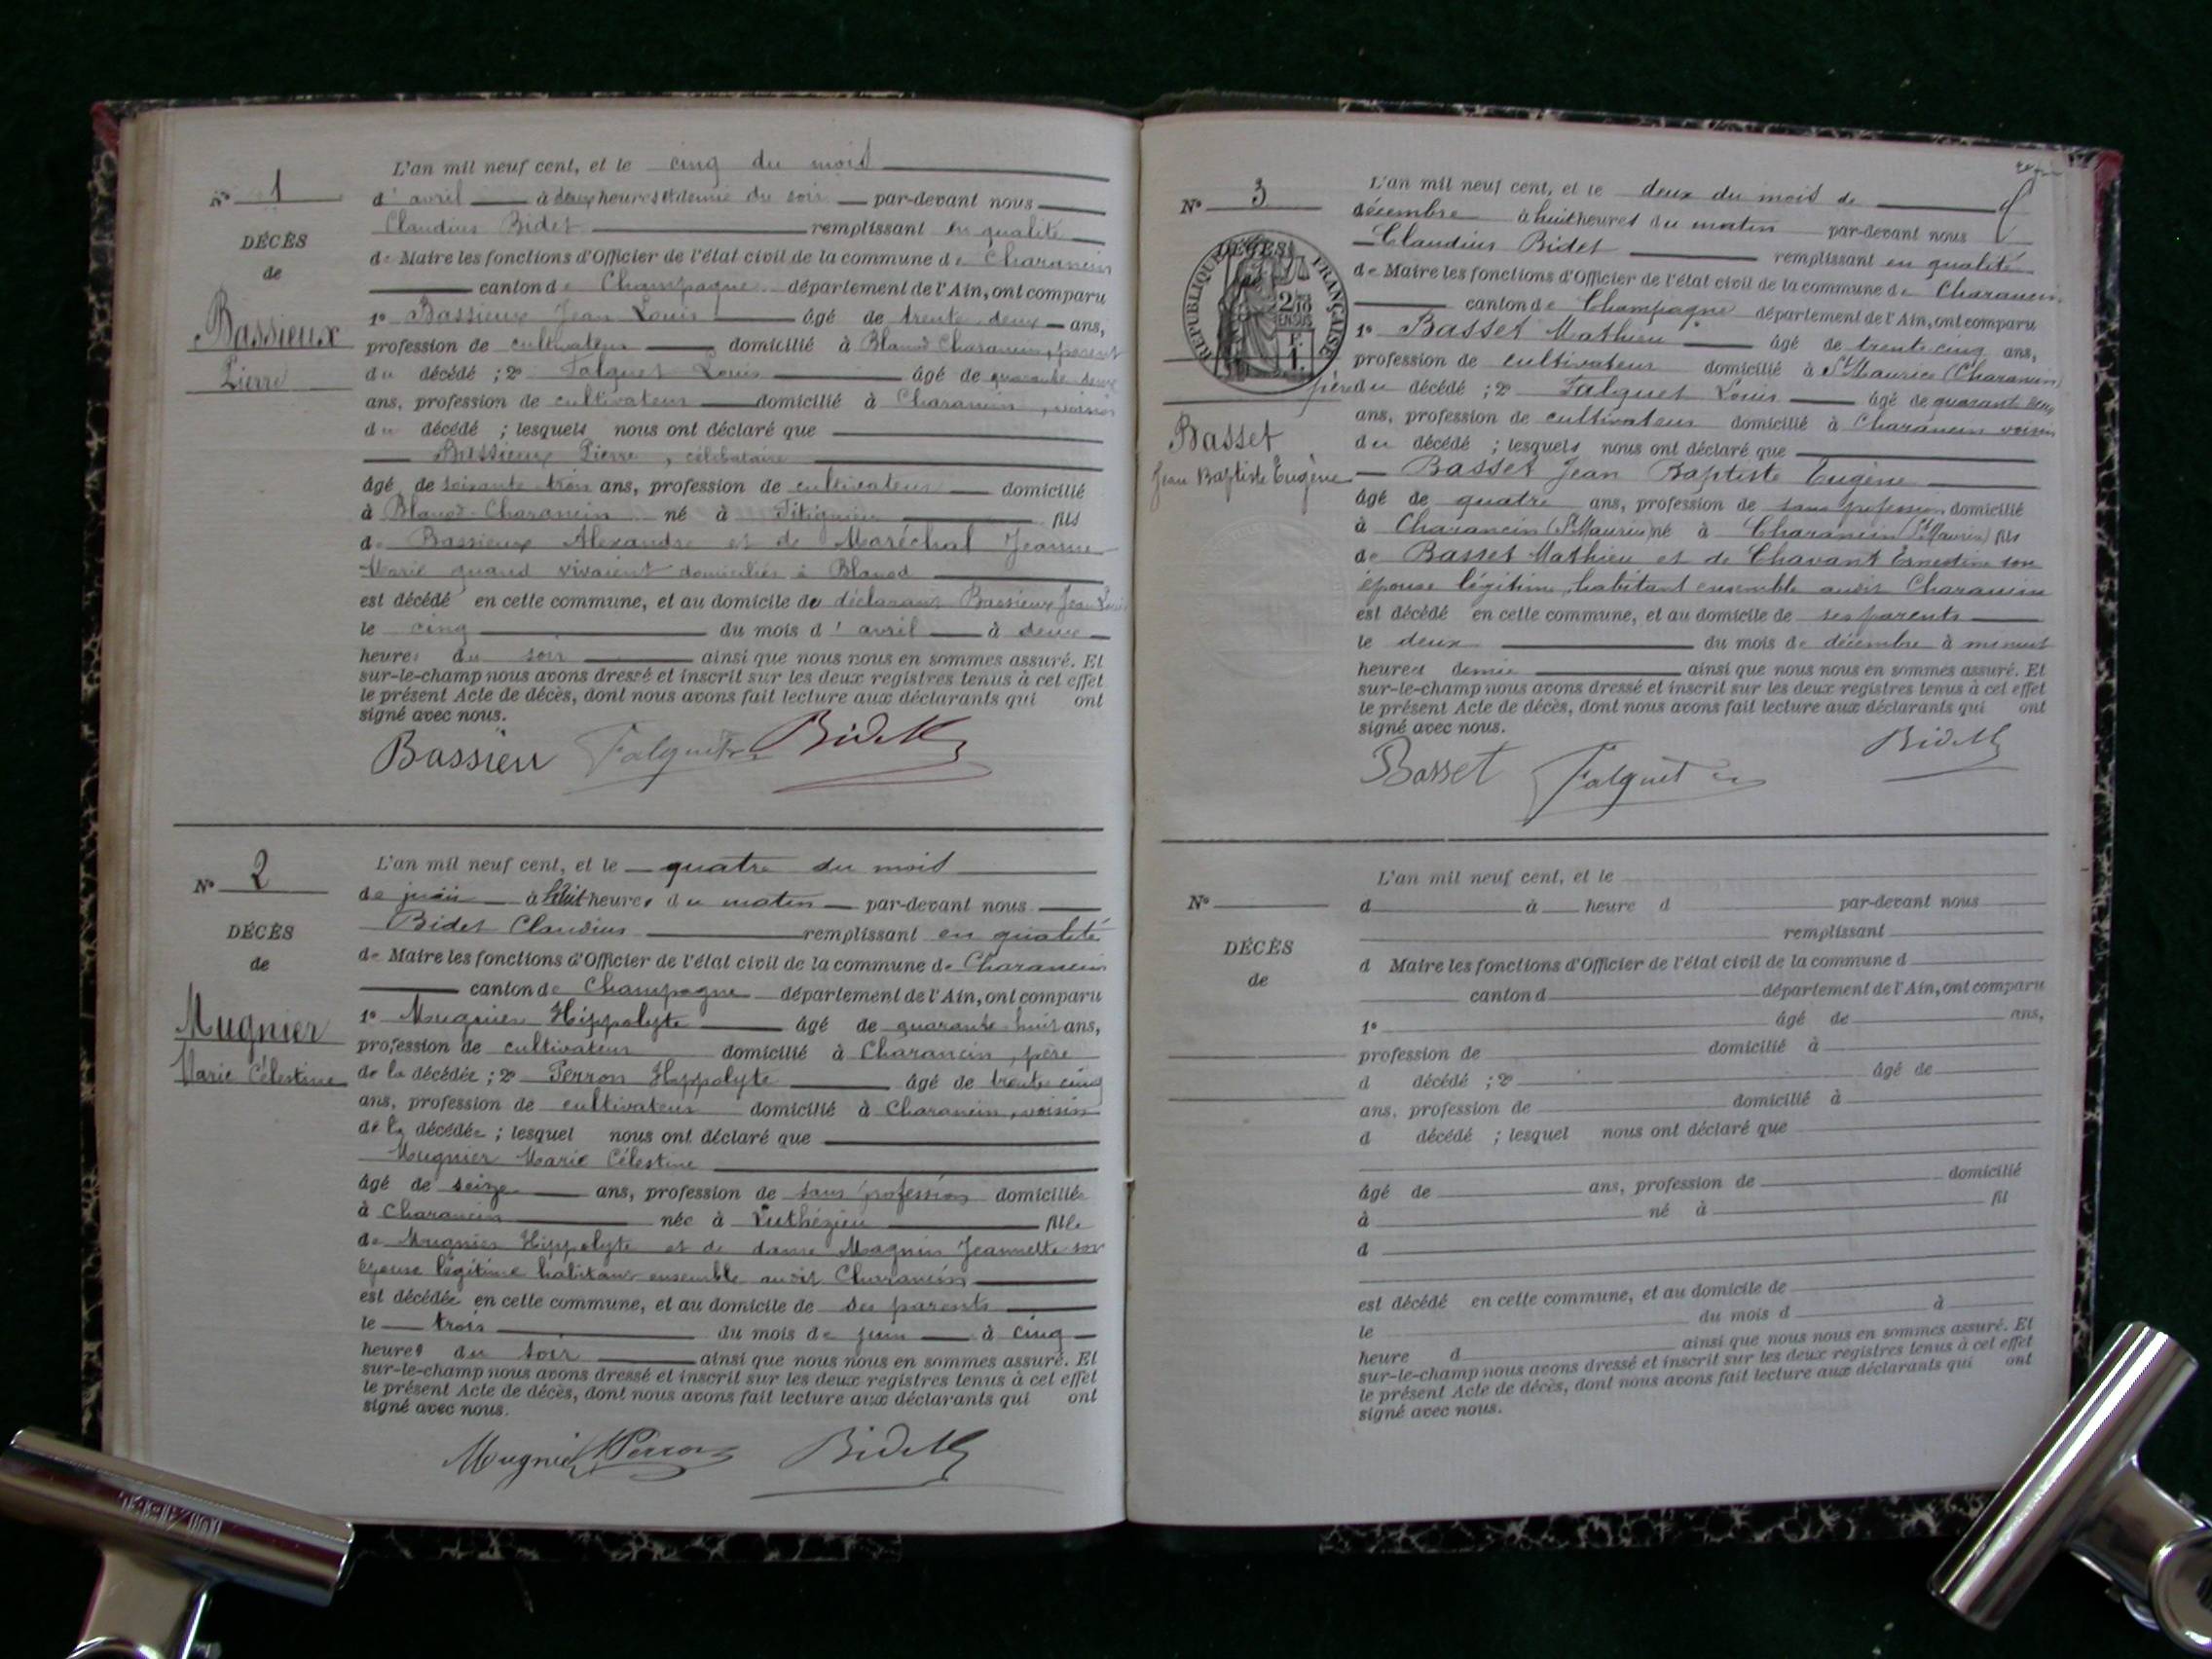 N° 1
DÉCÈS
de
Bassieux
Pierre
L'an mil neuf cent, et le cinq du mois
d'avril à deux heures et demie du soir par-devant nous
Claudius Bidet remplissant en qualité
de Maire les fonctions d'Officier de l'état civil de la commune de Charancin
canton de Champagne département de l'Ain, ont comparu
1° Bassieux Jean Louis âgé de trente deux ans,
profession de cultivateur domicilié à Blanod Charancin, parent
du décédé ; 2° Falquet Louis âgé de quarante deux
ans, profession de cultivateur domicilié à Charancin, voisin
du décédé ; lesquels nous ont déclaré que
Bassieux Pierre, célibataire
âgé de soixante trois ans, profession de cultivateur domicilié
à Blanod-Charancin né à fils
de Bassieux Alexandre et de Maréchal Jeanne
Marie quand vivaient domiciliés à Blanod
est décédé en cette commune, et au domicile du déclarant Bassieux Jean Louis
le cinq du mois d'avril à deux
heures du soir ainsi que nous nous en sommes assuré. Et
sur-le-champ nous avons dressé et inscrit sur les deux registres tenus à cet effet
le présent Acte de décès, dont nous avons fait lecture aux déclarants qui ont
signé avec nous.
Bassieu Falquet Bidet
N° 2
DÉCÈS
de
Mugnier
Marie Célestine
L'an mil neuf cent, et le quatre du mois
de juin à huit heures du matin par-devant nous
Bidet Claudius remplissant en qualité
de Maire les fonctions d'Officier de l'état civil de la commune de Charancin
canton de Champagne département de l'Ain, ont comparu
1° Mugnier Hippolyte âgé de quarante huit ans,
profession de cultivateur domicilié à Charancin, père
de la décédée ; 2° Perron Hippolyte âgé de trente cinq
ans, profession de cultivateur domicilié à Charancin, voisin
de la décédée ; lesquel nous ont déclaré que
Mugnier Marie Célestine
âgé de seize ans, profession de sans profession domiciliée
à Charancin née à Luthézieu fille
de Mugnier Hippolyte et de dame Magnin Jeannette son
épouse légitime habitant ensemble audit Charancin
est décédée en cette commune, et au domicile de ses parents
le trois du mois de juin à cinq
heures du soir ainsi que nous nous en sommes assuré. Et
sur-le-champ nous avons dressé et inscrit sur les deux registres tenus à cet effet
le présent Acte de décès, dont nous avons fait lecture aux déclarants qui ont
signé avec nous.
Mugnier HPerron Bidet
N° 3
RÉPUBLIQUE FRANÇAISE
DÉCÈS
2/10
EN SUS
1 F.
Basset
Jean Baptiste Eugène
L'an mil neuf cent, et le deux du mois de
décembre à huit heures du matin par-devant nous
Claudius Bidet remplissant en qualité
de Maire les fonctions d'Officier de l'état civil de la commune de Charancin
canton de Champagne département de l'Ain, ont comparu
1° Basset Mathieu âgé de trente cinq ans,
profession de cultivateur domicilié à St Maurice (Charancin)
père du décédé ; 2° Falquet Louis âgé de quarant deux
ans, profession de cultivateur domicilié à Charancin voisin
du décédé ; lesquels nous ont déclaré que
Basset Jean Baptiste Eugène
âgé de quatre ans, profession de sans profession domicilié
à Charancin (St Maurice) né à Charancin (St Maurice) fils
de Basset Mathieu et de Chavant Ernestine son
épouse légitime, habitant ensemble audit Charancin
est décédé en cette commune, et au domicile de ses parents
le deux du mois de décembre à minuit
heure et demie ainsi que nous nous en sommes assuré. Et
sur-le-champ nous avons dressé et inscrit sur les deux registres tenus à cet effet
le présent Acte de décès, dont nous avons fait lecture aux déclarants qui ont
signé avec nous.
Basset Falquet Bidet
N°
DÉCÈS
de
L'an mil neuf cent, et le
d à heure d par-devant nous
remplissant
d Maire les fonctions d'Officier de l'état civil de la commune d
canton d département de l'Ain, ont comparu
1° âgé de ans,
profession de domicilié à
d décédé ; 2° âgé de
ans, profession de domicilié à
d décédé ; lesquel nous ont déclaré que
âgé de ans, profession de domicilié
à né à fil
d
est décédé en cette commune, et au domicile de
le du mois d à
heure d ainsi que nous nous en sommes assuré. Et
sur-le-champ nous avons dressé et inscrit sur les deux registres tenus à cet effet
le présent Acte de décès, dont nous avons fait lecture aux déclarants qui ont
signé avec nous.